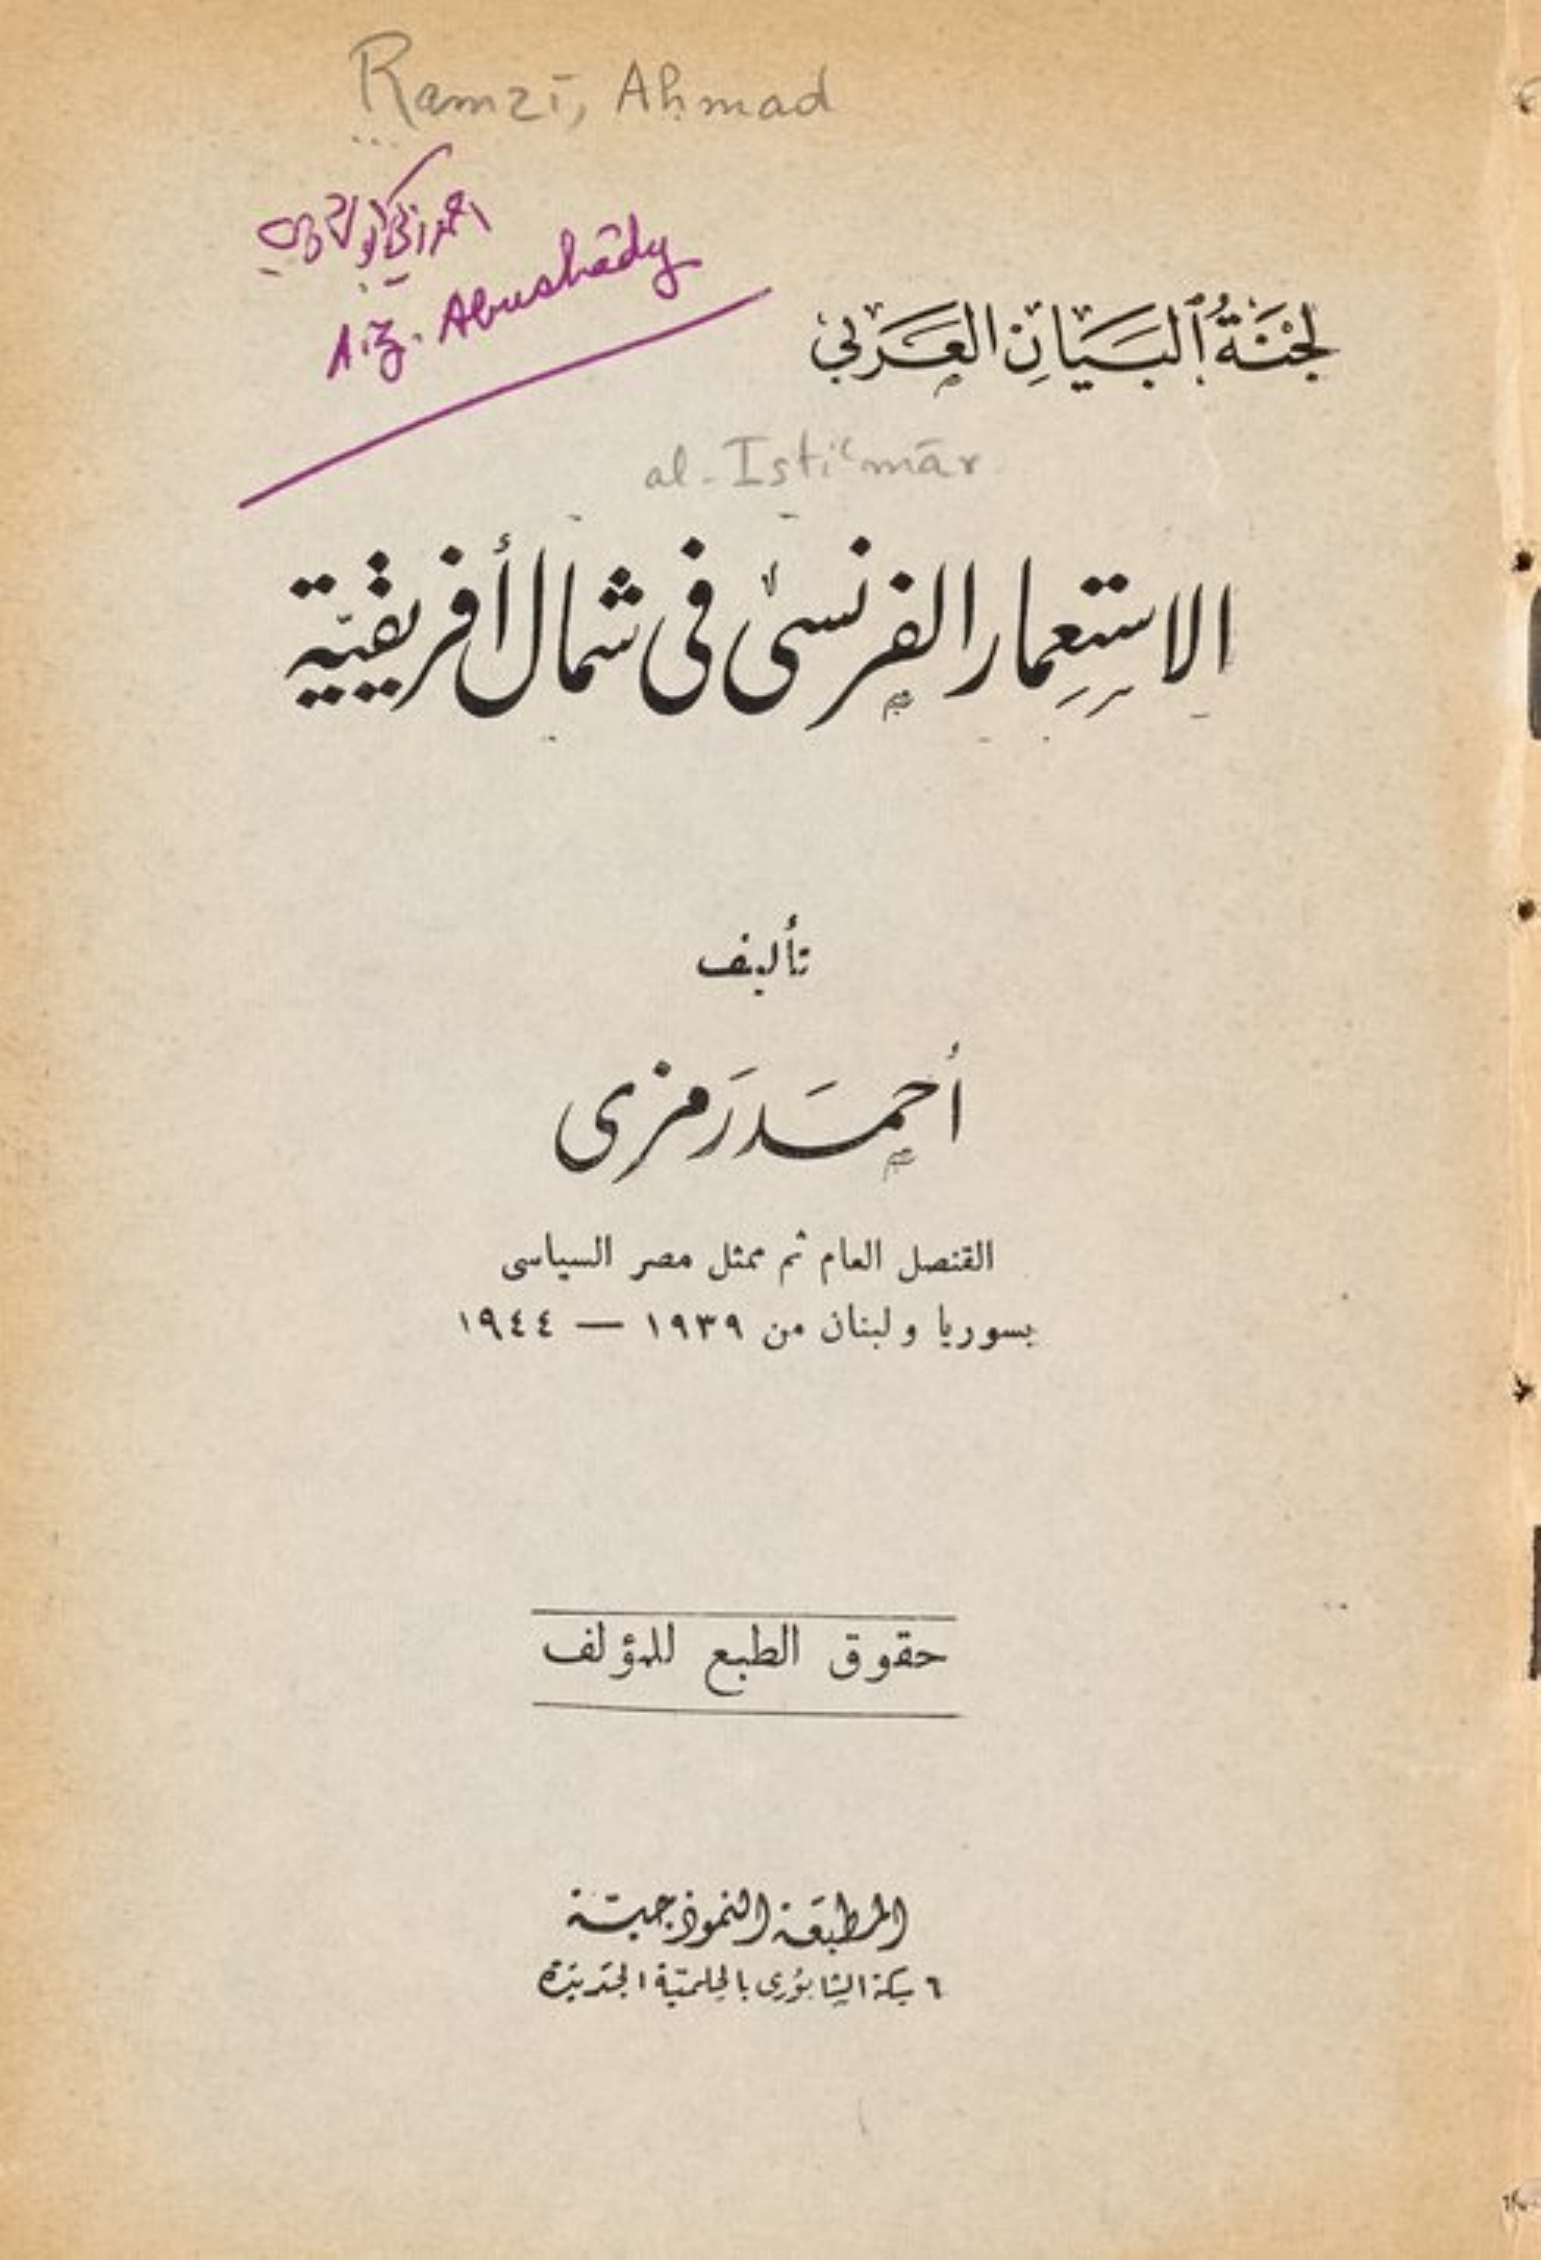 Ramzī, Aḥmad
احمد زكي أبو شادي
A.Z. Abushâdy
لجْنَةُ ٱلبَيَانِ العَرَبي
al-Istiʿmār
الاستِعِمار الفرنسى فى شمال أفريقيّة
تأليف
أحمَد رَمزى
القنصل العام ثم ممثل مصر السياسى
بسوريا ولبنان من ١٩٣٩ — ١٩٤٤
حقوق الطبع للمؤلف
المطبعة النموذجية
٦ سكة الشابورى بالحلمية الجديدة